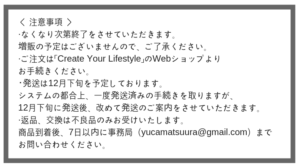 〈 注意事項 〉
・なくなり次第終了をさせていただきます。
増販の予定はございませんので、ご了承ください。
・ご注文は「Create Your Lifestyle」のWebショップより
お手続きください。
・発送は12月下旬を予定しております。
システムの都合上、一度発送済みの手続きを取りますが、
12月下旬に発送後、改めて発送のご案内をさせていただきます。
・返品、交換は不良品のみお受けいたします。
商品到着後、7日以内に事務局（yucamatsuura@gmail.com）まで
お問い合わせください。